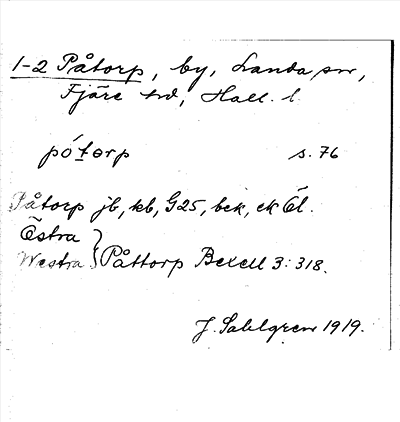 1-2 Påtorp, by, Landa sn,
Fjäre hd, Hall. l.
pótorp s. 76
Påtorp jb, kb, G25, bek, ek Öl.
Östra
Westra } Påttorp Bexell 3:318.
J. Sahlgren 1919.